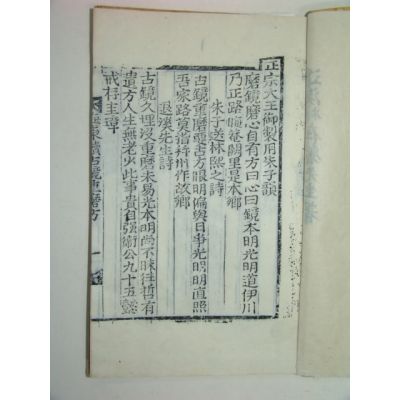 正宗大王御製用朱子韻
磨鏡磨心自有方曰心曰鏡本明光明道伊川
乃正路晦菴闕里是本鄉
朱子送林熙之詩
古鏡重磨要古方眼明偏與日爭光明明直照
吾家路莫指幷州作故鄉
退溪先生詩
古鏡久埋沒重磨未易光本明尚不昧往哲有
遺方人生無老少此事貴自強衛公九十五懿
戒存圭璋
海東續古鏡重磨方 一